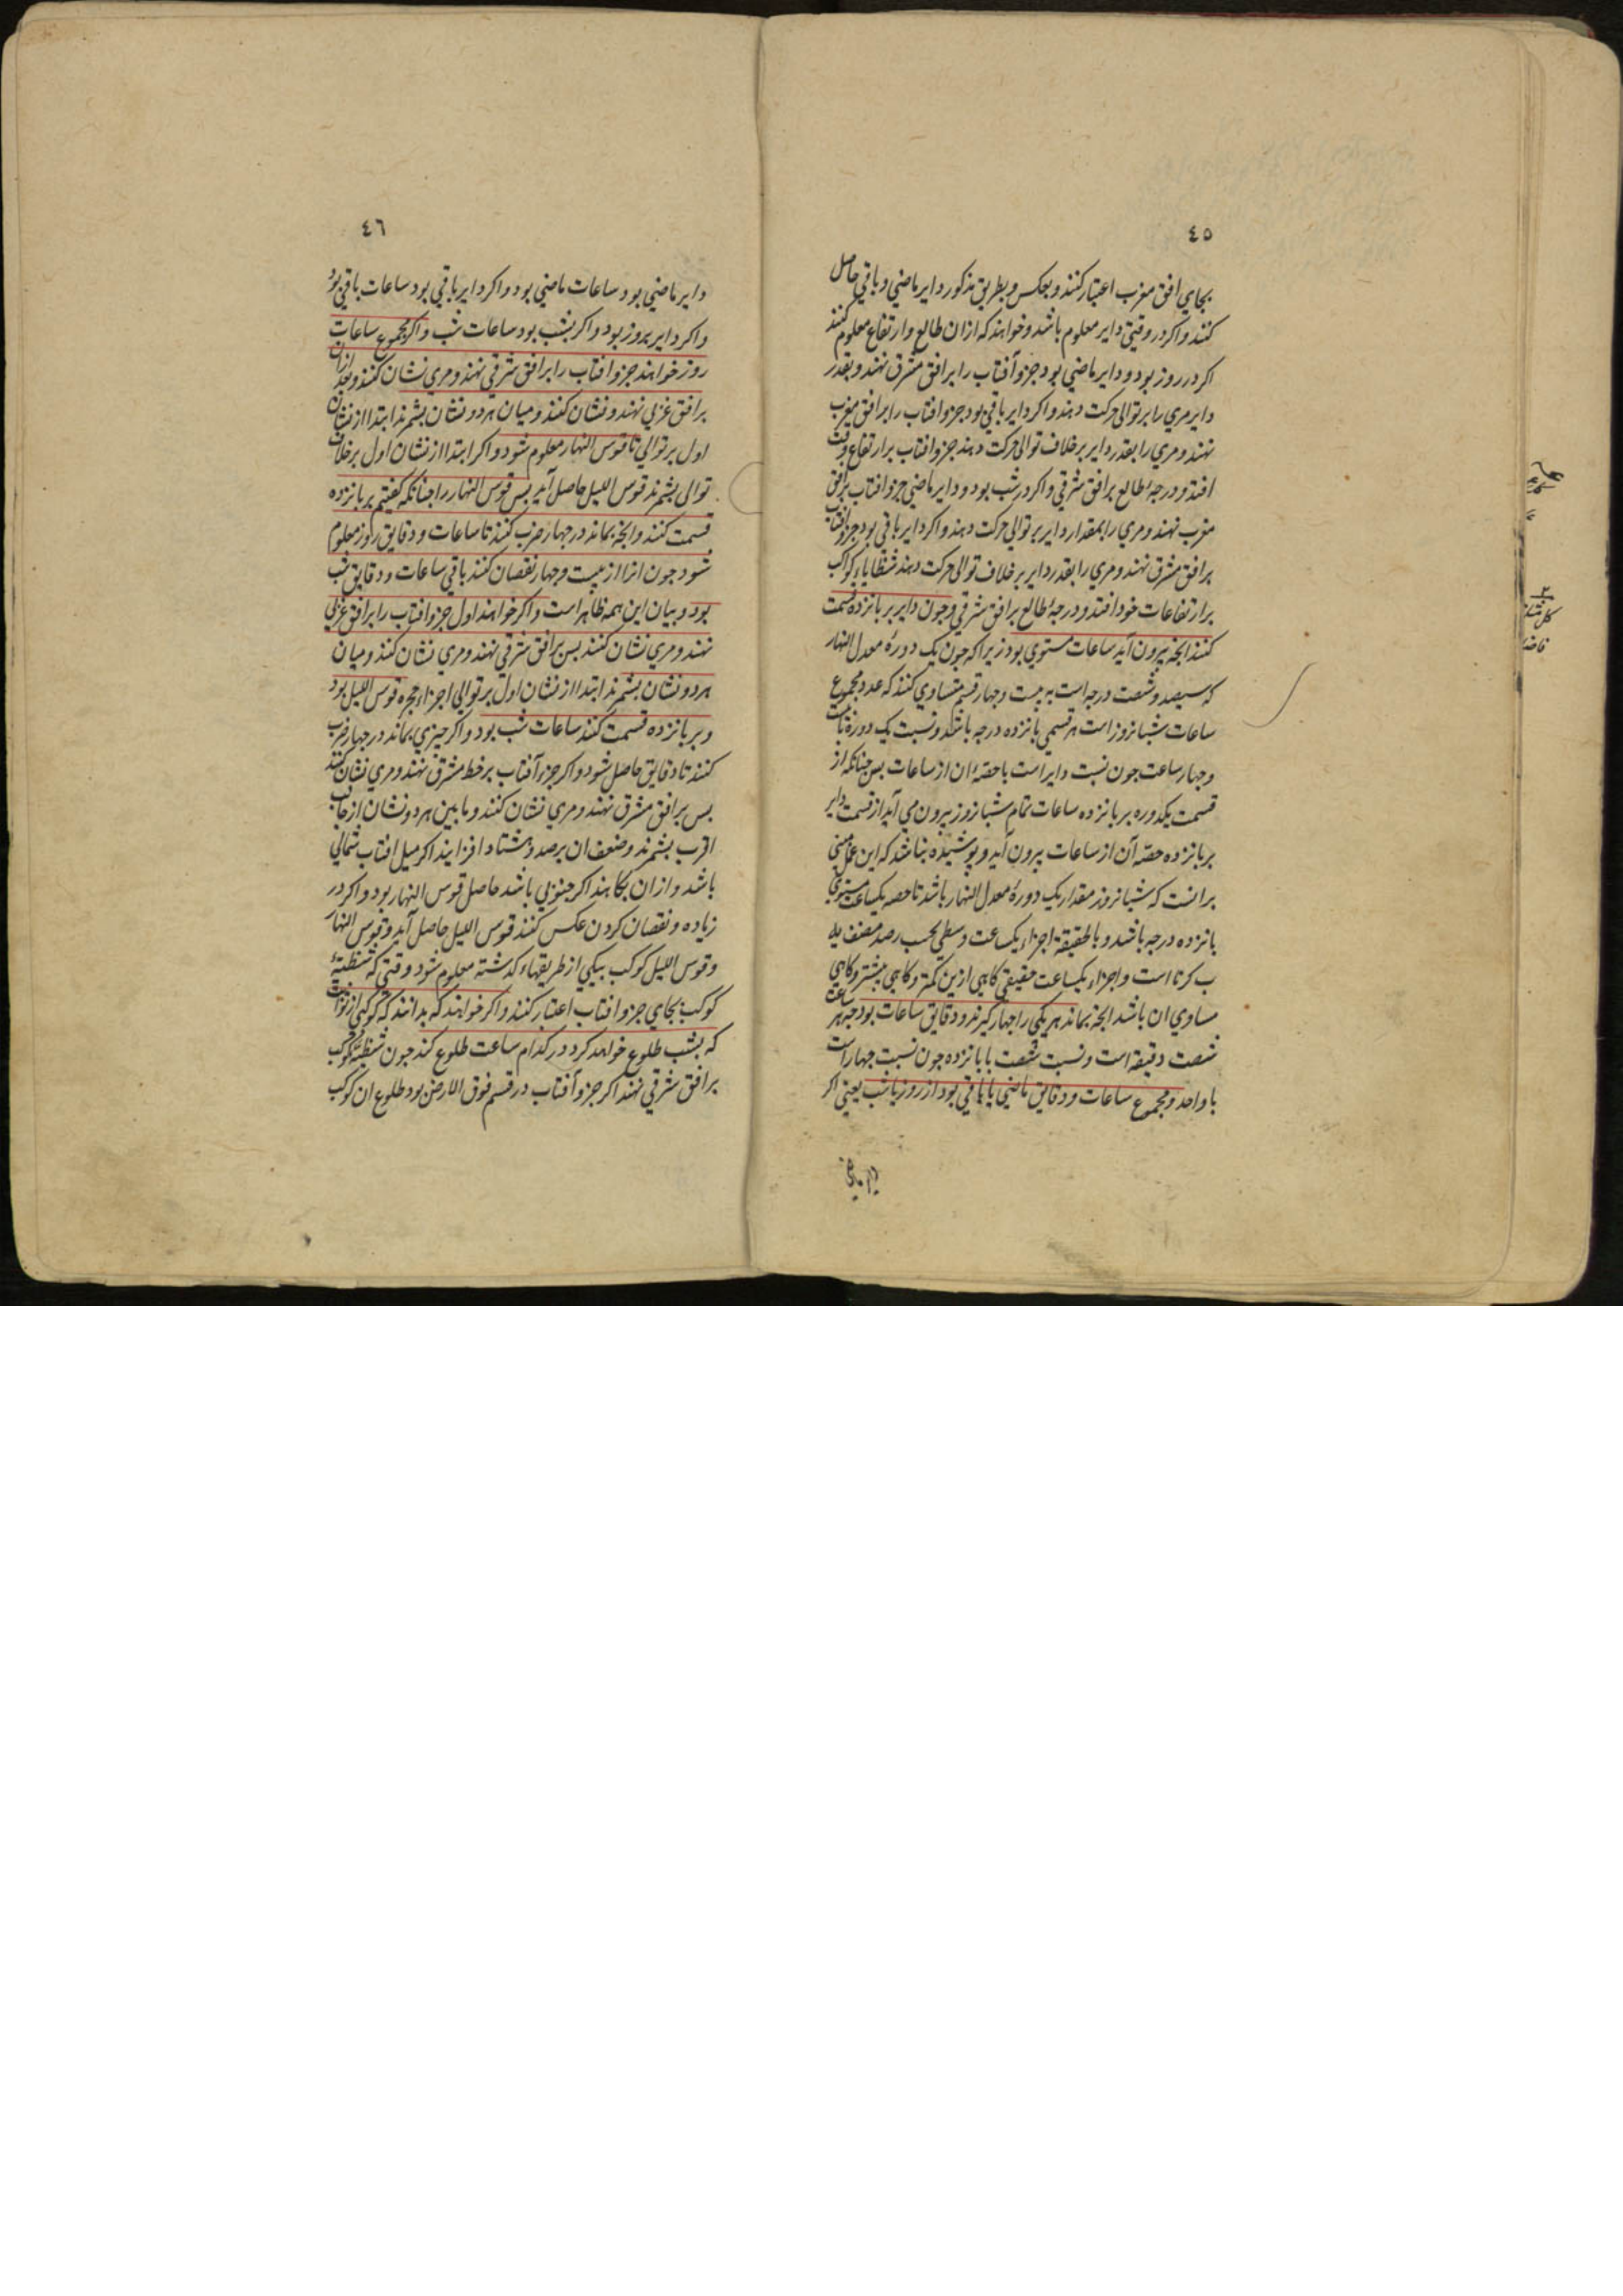 ٤٥
بجاي افق مغرب اعتبار كنند و بعكس و بطريق مذكور داير ماضي و باقي حاصل
كنند و اكر در وقتي داير معلوم باشد و خواهند كه ازان طالع و ارتفاع معلوم كنند
اكر در روز بود و داير ماضي بود جزو آفتاب را بر افق مشرق نهند و بقدر
داير مري را بر توالي حركت دهند و اكر داير باقي بود جزو افتاب را بر افق مغرب
نهند و مري را بقدر داير بر خلاف توالي حركت دهند جزو افتاب بر ارتفاع وقت
افتد و درجهٔ طالع بر افق شرقي و اكر در شب بود و داير ماضي جزو افتاب بر افق
مغرب نهند و مري را بمقدار داير بر توالي حركت دهند و اكر داير باقي بود جزو افتاب
بر افق مشرق نهند و مري را بقدر داير بر خلاف توالي حركت دهند شظاياء كواكب
بر ارتفاعات خود افتد و درجهٔ طالع بر افق شرقي و جون داير بر بانزده قسمت
كنند انجه بيرون آيد ساعات مستوي بود زيرا كه جون يك دورهٔ معدل النهار
كه سيصد و شصت درجه است به بيست و جهار قسم متساوي كنند كه عدد مجموع
ساعات شبانروز است هر قسمي بانزده درجه باشد و نسبت يك دوره با بيست
و جهار ساعت جون نسبت داير است با حصهٔ ان از ساعات بس جنانكه از
قسمت يكدوره بر بانزده ساعات تمام شبانروز بيرون مي آيد از قسمت داير
بر بانزده حصهٔ آن از ساعات بيرون آيد و بوشيده نباشد كه اين عمل مبني
برانست كه شبانروز مقدار يك دورهٔ معدل النهار باشد تا حصه يكساعت مستوي
بانزده درجه باشد و بالحقيقة اجزاء يكساعت وسطي بحسب رصد مصنف يه
ب كزنا است و اجزاء يكساعت حقيقي كاهي ازين كمتر و كاهي بيشتر و كاهي
مساوي ان باشد انجه بماند هر يكي را جهار كيرند و دقايق ساعات بود جه هر ساعت
شصت دقيقه است و نسبت شصت با بانزده جون نسبت جهار است
با واحد و مجموع ساعات و دقايق ماضي يا باقي بود از روز يا شب يعني اكر
٤٦
داير ماضي بود ساعات ماضي بود و اكر داير باقي بود ساعات باقي بود
و اكر داير بروز بود و اكر بشب بود ساعات شب و اكر مجموع ساعات
روز خواهند جزو افتاب را بر افق شرقي نهند و مري نشان كنند و بعد ازان
بر افق غربي نهند و نشان كنند و ميان هر دو نشان بشمرند ابتدا از نشان
اول بر توالي تا قوس النهار معلوم شود و اكر ابتدا از نشان اول بر خلاف
توالي بشمرند قوس الليل حاصل آيد بس قوس النهار را جنانكه كفتيم بر بانزده
قسمت كنند و انجه بماند در جهار ضرب كنند تا ساعات و دقايق روز معلوم
شود جون انرا از بيست و جهار نقصان كنند باقي ساعات و دقايق شب
بود و بيان اين همه ظاهر است و اكر خواهند اول جزو افتاب را بر افق غربي
نهند و مري نشان كنند بس بر افق شرقي نهند و مري نشان كنند و ميان
هر دو نشان بشمرند ابتدا از نشان اول بر توالي اجزاء حجره قوس الليل بود
و بر بانزده قسمت كنند ساعات شب بود و اكر جيزي بماند در جهار ضرب
كنند تا دقايق حاصل شود و اكر جزو آفتاب بر خط مشرق نهند و مري نشان كنند
بس بر افق مشرق نهند و مري نشان كنند و مابين هر دو نشان از جانب
اقرب بشمرند و ضعف ان بر صد و هشتاد افزايند اكر ميل افتاب شمالي
باشد و ازان بكاهند اكر جنوبي باشد حاصل قوس النهار بود و اكر در
زياده و نقصان كردن عكس كنند قوس الليل حاصل آيد و قوس النهار
و قوس الليل كوكب بيكي از طريقهاء كذشته معلوم شود وقتي كه شظيهٔ
كوكب بجاي جزو افتاب اعتبار كنند و اكر خواهند كه بدانند كه كوكبي از ثوابت
كه بشب طلوع خواهد كرد در كدام ساعت طلوع كند جون شظيهٔ كوكب
بر افق شرقي نهند اكر جزو آفتاب در قسم فوق الارض بود طلوع ان كوكب